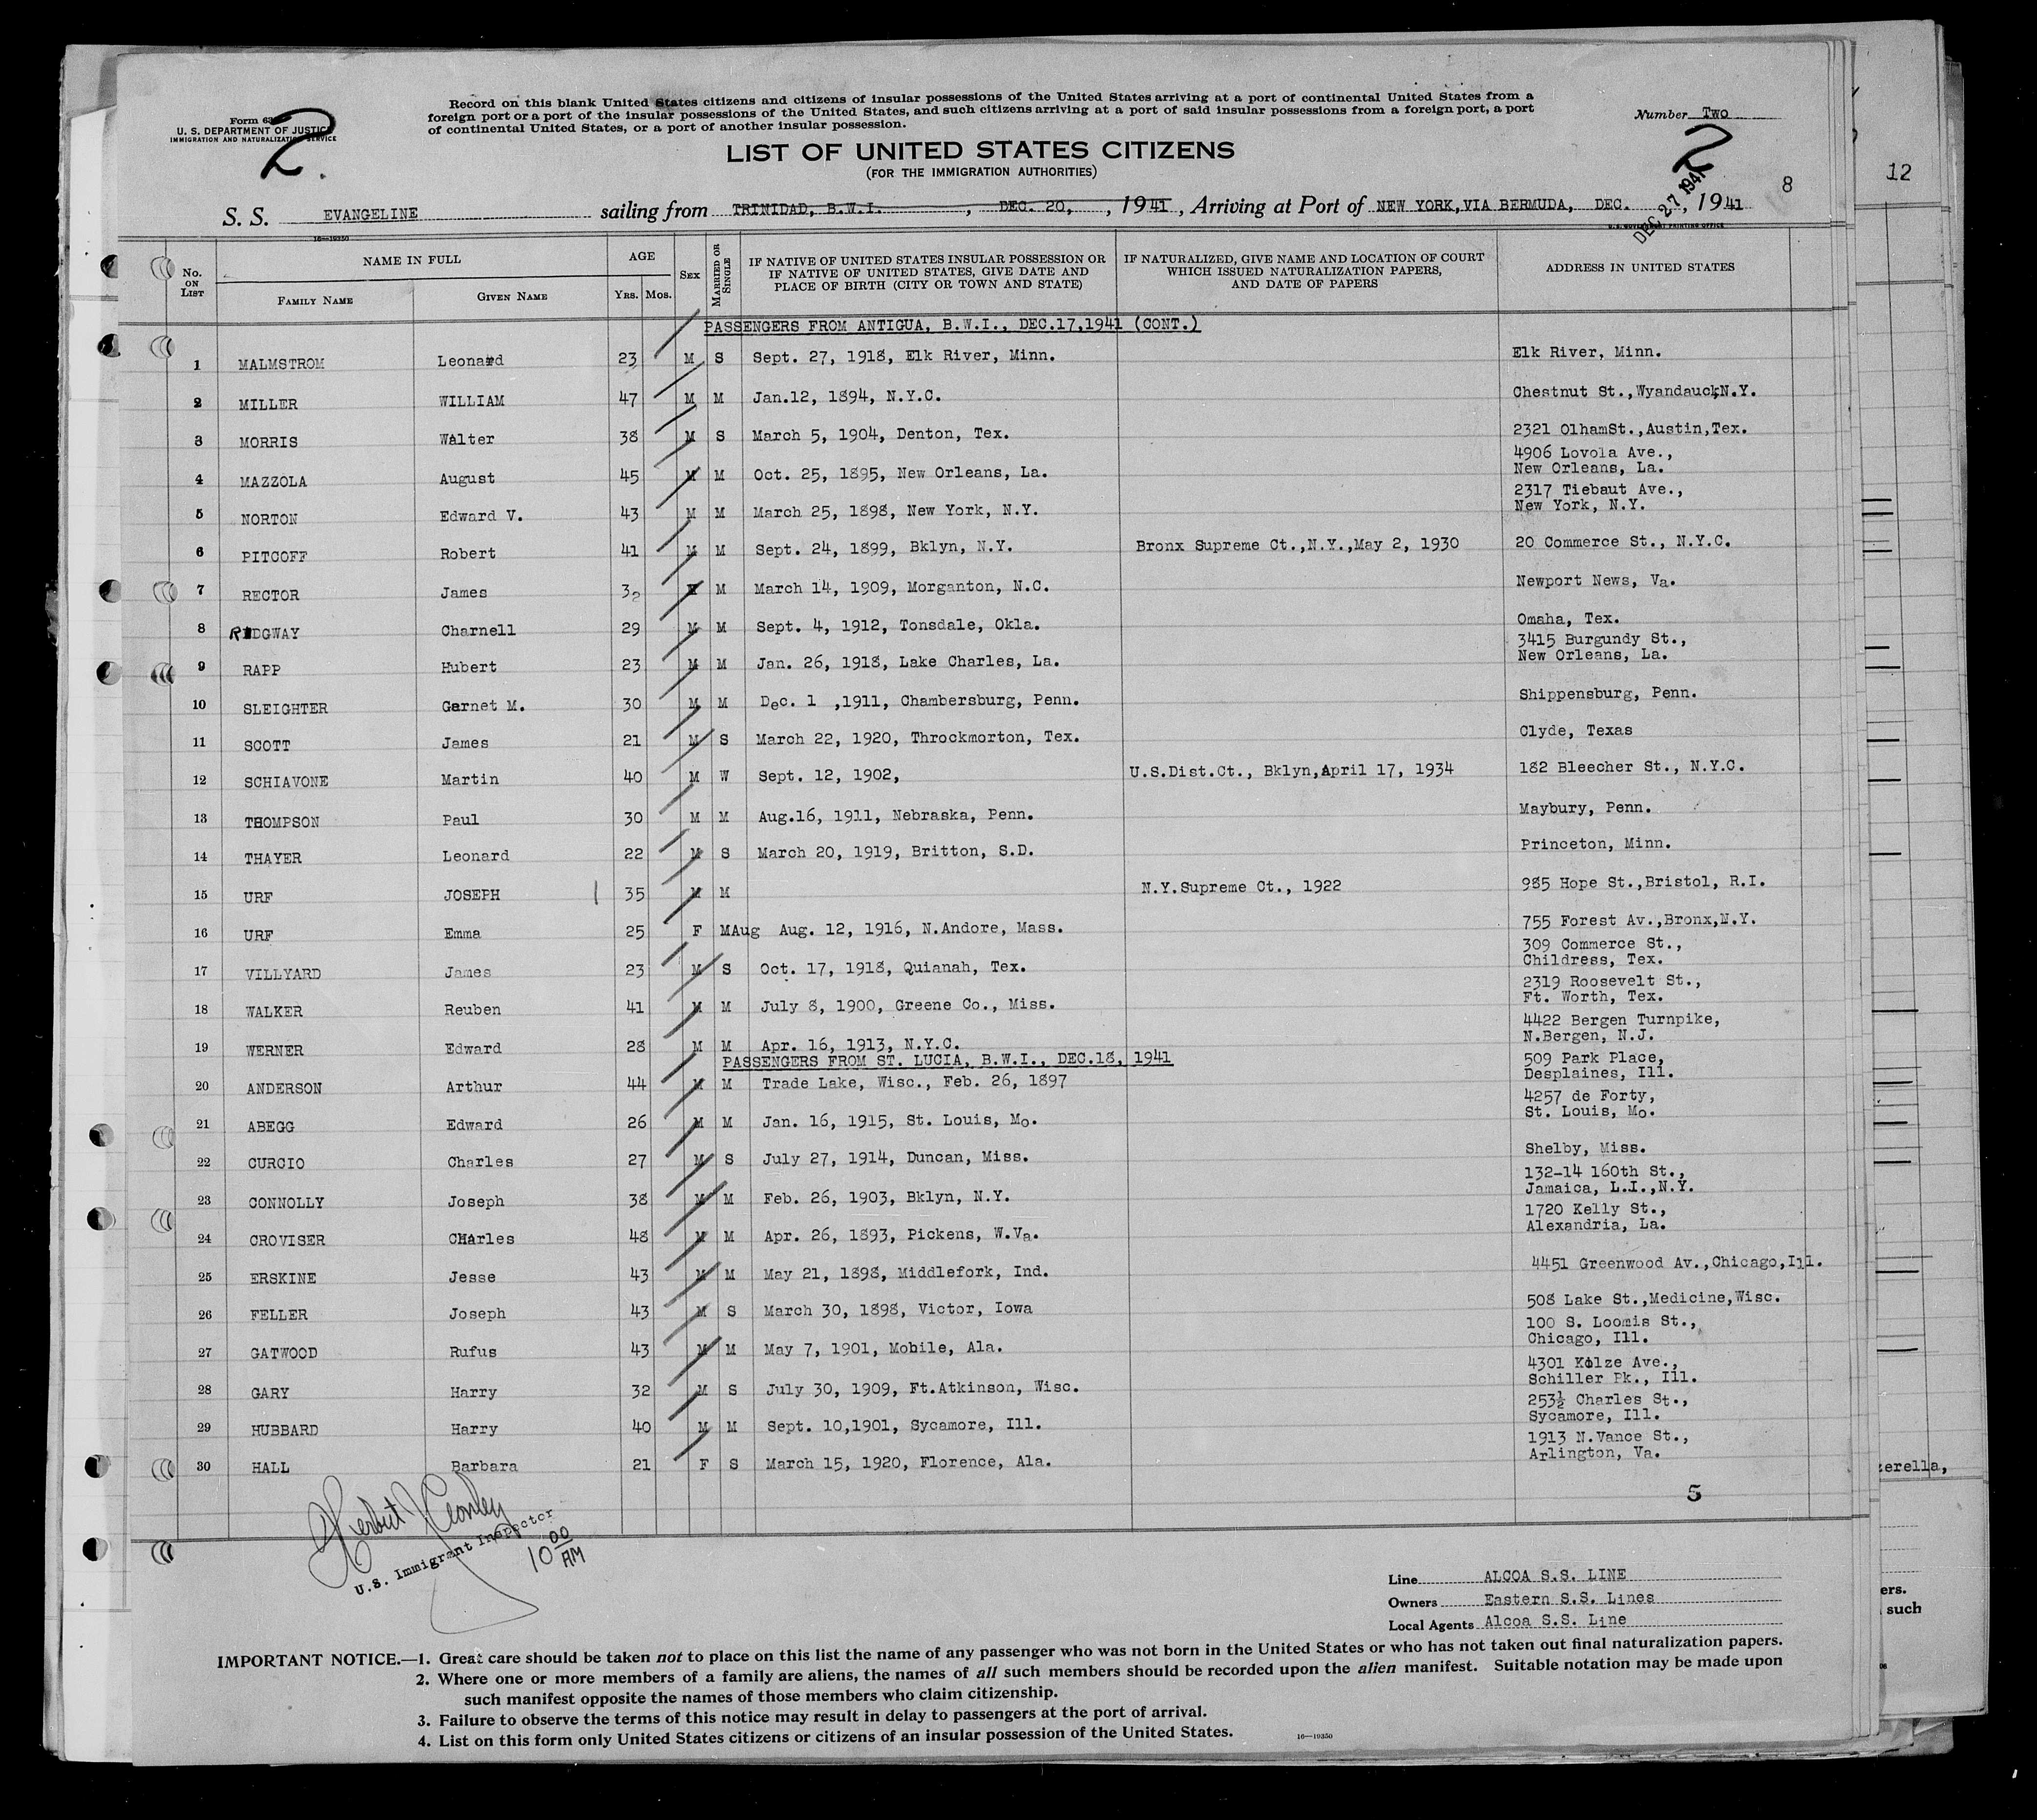 Record on this blank United States citizens and citizens of insular possessions of the United States arriving at a port of continental United States from a
foreign port or a port of the insular possessions of the United States, and such citizens arriving at a port of said insular possessions from a foreign port, a port
of continental United States, or a port of another insular possession.
Form 63
U. S. DEPARTMENT OF JUSTICE
IMMIGRATION AND NATURALIZATION SERVICE
2.
Number Two
2
LIST OF UNITED STATES CITIZENS
(FOR THE IMMIGRATION AUTHORITIES)
8
12
S. S. EVANGELINE sailing from TRINIDAD, B.W.I. , DEC. 20, , 1941 , Arriving at Port of NEW YORK,VIA BERMUDA, DEC. , 1941
DEC 27 1941
16—19350
U. S. GOVERNMENT PRINTING OFFICE
No. ON LIST NAME IN FULL FAMILY NAME GIVEN NAME AGE YRS. MOS. SEX MARRIED OR SINGLE IF NATIVE OF UNITED STATES INSULAR POSSESSION OR IF NATIVE OF UNITED STATES, GIVE DATE AND PLACE OF BIRTH (CITY OR TOWN AND STATE) IF NATURALIZED, GIVE NAME AND LOCATION OF COURT WHICH ISSUED NATURALIZATION PAPERS, AND DATE OF PAPERS ADDRESS IN UNITED STATES
PASSENGERS FROM ANTIGUA, B.W.I., DEC.17,1941 (CONT.)
1 MALMSTROM Leonard 23 M S Sept. 27, 1918, Elk River, Minn. Elk River, Minn.
2 MILLER WILLIAM 47 M M Jan.12, 1894, N.Y.C. Chestnut St.,Wyandauck,N.Y.
3 MORRIS WAlter 38 M S March 5, 1904, Denton, Tex. 2321 OlhamSt.,Austin,Tex.
4 MAZZOLA August 45 M M Oct. 25, 1895, New Orleans, La. 4906 Lovola Ave., New Orleans, La.
5 NORTON Edward V. 43 M M March 25, 1898, New York, N.Y. 2317 Tiebaut Ave., New York, N.Y.
6 PITCOFF Robert 41 M M Sept. 24, 1899, Bklyn, N.Y. Bronx Supreme Ct.,N.Y.,May 2, 1930 20 Commerce St., N.Y.C.
7 RECTOR James 32 M M March 14, 1909, Morganton, N.C. Newport News, Va.
8 RIDGWAY Charnell 29 M M Sept. 4, 1912, Tonsdale, Okla. Omaha, Tex.
9 RAPP Hubert 23 M M Jan. 26, 1918, Lake Charles, La. 3415 Burgundy St., New Orleans, La.
10 SLEIGHTER Garnet M. 30 M M Dec. 1 ,1911, Chambersburg, Penn. Shippensburg, Penn.
11 SCOTT James 21 M S March 22, 1920, Throckmorton, Tex. Clyde, Texas
12 SCHIAVONE Martin 40 M W Sept. 12, 1902, U.S.Dist.Ct., Bklyn,April 17, 1934 182 Bleecher St., N.Y.C.
13 THOMPSON Paul 30 M M Aug.16, 1911, Nebraska, Penn. Maybury, Penn.
14 THAYER Leonard 22 M S March 20, 1919, Britton, S.D. Princeton, Minn.
15 URF JOSEPH 35 M M N.Y.Supreme Ct., 1922 985 Hope St.,Bristol, R.I.
16 URF Emma 25 F MAug Aug. 12, 1916, N.Andore, Mass. 755 Forest Av.,Bronx,N.Y.
17 VILLYARD James 23 M S Oct. 17, 1918, Quianah, Tex. 309 Commerce St., Childress, Tex.
18 WALKER Reuben 41 M M July 8, 1900, Greene Co., Miss. 2319 Roosevelt St., Ft. Worth, Tex.
19 WERNER Edward 28 M M Apr. 16, 1913, N.Y.C. 4422 Bergen Turnpike, N.Bergen, N.J.
PASSENGERS FROM ST. LUCIA, B.W.I., DEC.18, 1941
20 ANDERSON Arthur 44 M M Trade Lake, Wisc., Feb. 26, 1897 509 Park Place, Desplaines, Ill.
21 ABEGG Edward 26 M M Jan. 16, 1915, St. Louis, Mo. 4257 de Forty, St. Louis, Mo.
22 CURCIO Charles 27 M S July 27, 1914, Duncan, Miss. Shelby, Miss.
23 CONNOLLY Joseph 38 M M Feb. 26, 1903, Bklyn, N.Y. 132-14 160th St., Jamaica, L.I.,N.Y.
24 CROVISER CHArles 48 M M Apr. 26, 1893, Pickens, W.Va. 1720 Kelly St., Alexandria, La.
25 ERSKINE Jesse 43 M M May 21, 1898, Middlefork, Ind. 4451 Greenwood Av.,Chicago,Ill.
26 FELLER Joseph 43 M S March 30, 1898, Victor, Iowa 508 Lake St.,Medicine,Wisc.
27 GATWOOD Rufus 43 M M May 7, 1901, Mobile, Ala. 100 S. Loomis St., Chicago, Ill.
28 GARY Harry 32 M S July 30, 1909, Ft.Atkinson, Wisc. 4301 Kolze Ave., Schiller Pk., Ill.
29 HUBBARD Harry 40 M M Sept. 10,1901, Sycamore, Ill. 253½ Charles St., Sycamore, Ill.
30 HALL Barbara 21 F S March 15, 1920, Florence, Ala. 1913 N.Vance St., Arlington, Va.
zerella,
5
Herbert
U.S. Immigrant Inspector
10 00 AM
Line ALCOA S.S. LINE
Owners Eastern S.S. Lines
Local Agents Alcoa S.S. Line
ers.
such
IMPORTANT NOTICE.—1. Great care should be taken not to place on this list the name of any passenger who was not born in the United States or who has not taken out final naturalization papers.
2. Where one or more members of a family are aliens, the names of all such members should be recorded upon the alien manifest. Suitable notation may be made upon
such manifest opposite the names of those members who claim citizenship.
3. Failure to observe the terms of this notice may result in delay to passengers at the port of arrival.
4. List on this form only United States citizens or citizens of an insular possession of the United States.
16—19350